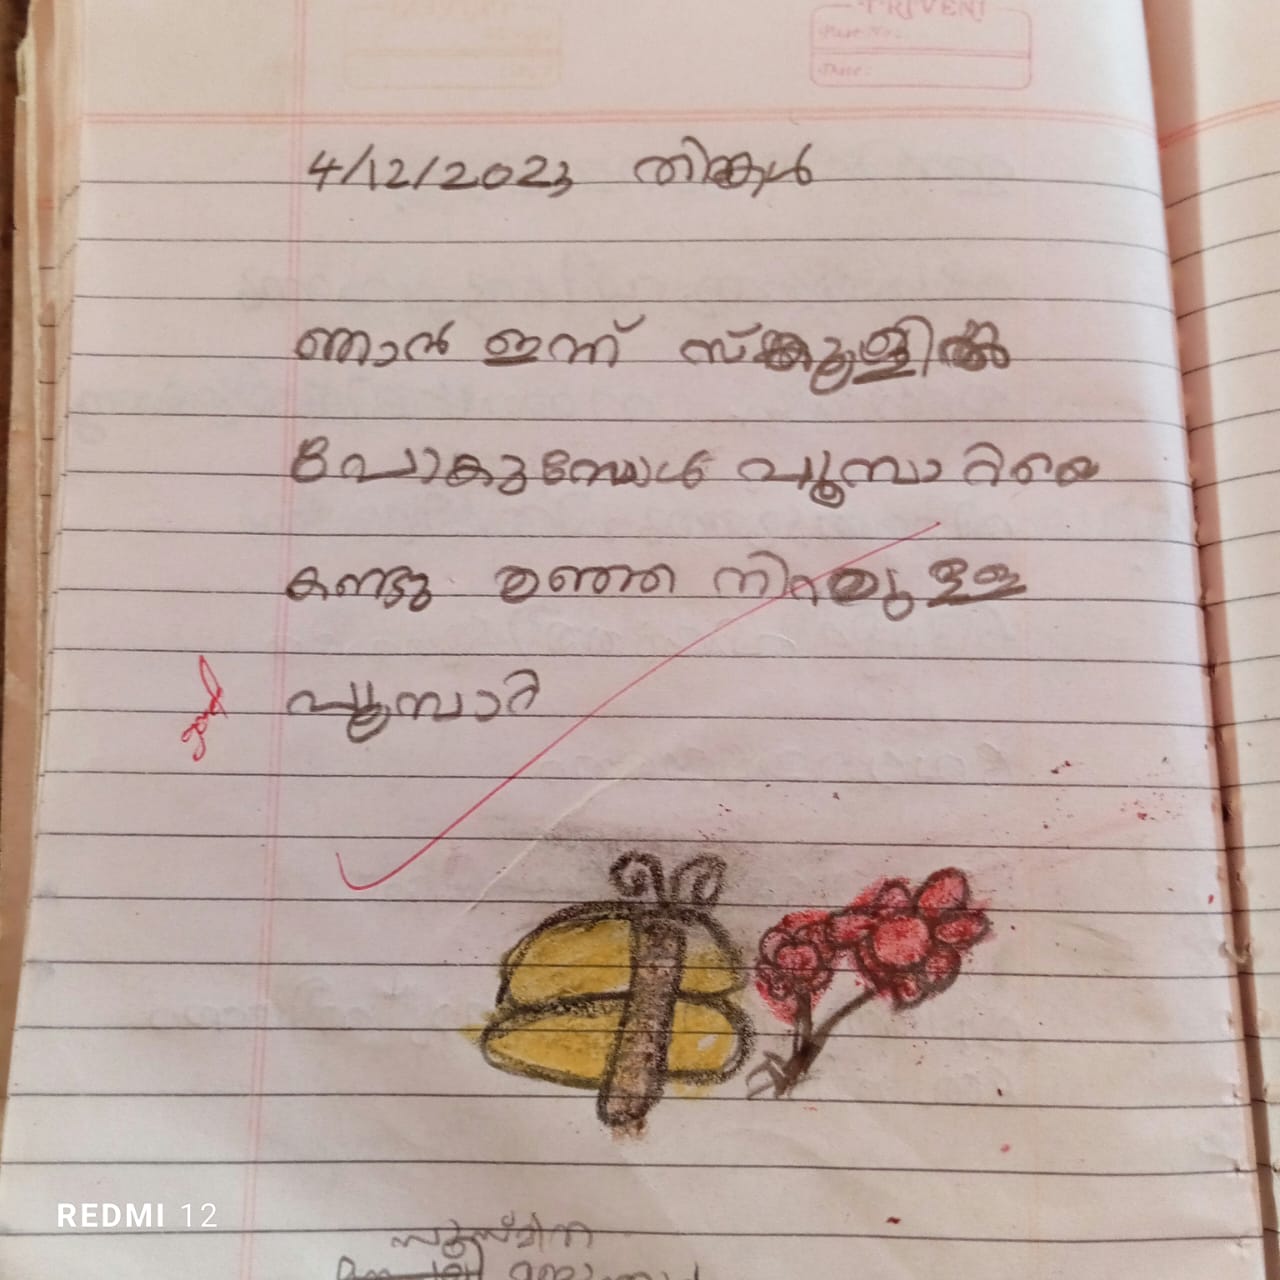 TRIVENI
Page No.:
Date:
4/12/2023 തിങ്കൾ
ഞാൻ ഇന്ന് സ്കൂളിൽ
പോകുമ്പോൾ പൂമ്പാറ്റയെ
കണ്ടു മഞ്ഞ നിറമുള്ള
പൂമ്പാറ്റ
REDMI 12